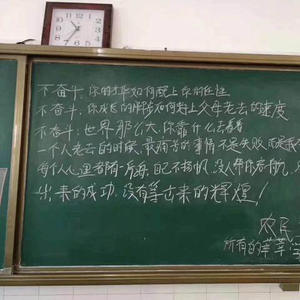 不奋斗,你的才华如何配上你的任性
不奋斗,你成长的脚步如何赶上父母老去的速度
不奋斗,世界那么大,你靠什么去看看
一个人老去的时候,最痛苦的事情不是失败,而是我
每个人心里都有一片海,自己不扬帆,没人帮你启航,只
出来的成功,没有等出来的辉煌!
农民
所有的